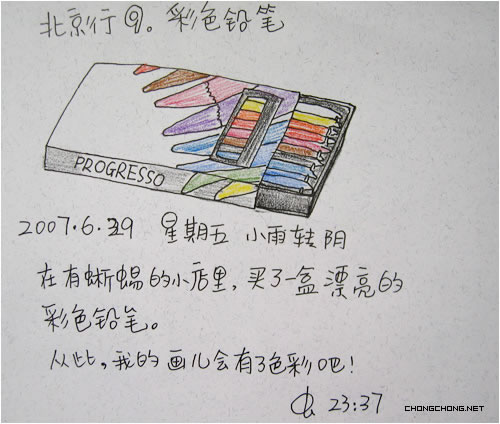 北京行⑨。彩色铅笔
PROGRESSO
2007.6.29 星期五 小雨转阴
在有蜥蜴的小店里，买了一盒漂亮的
彩色铅笔。
从此，我的画儿会有了色彩吧！
23:37
CHONGCHONG.NET